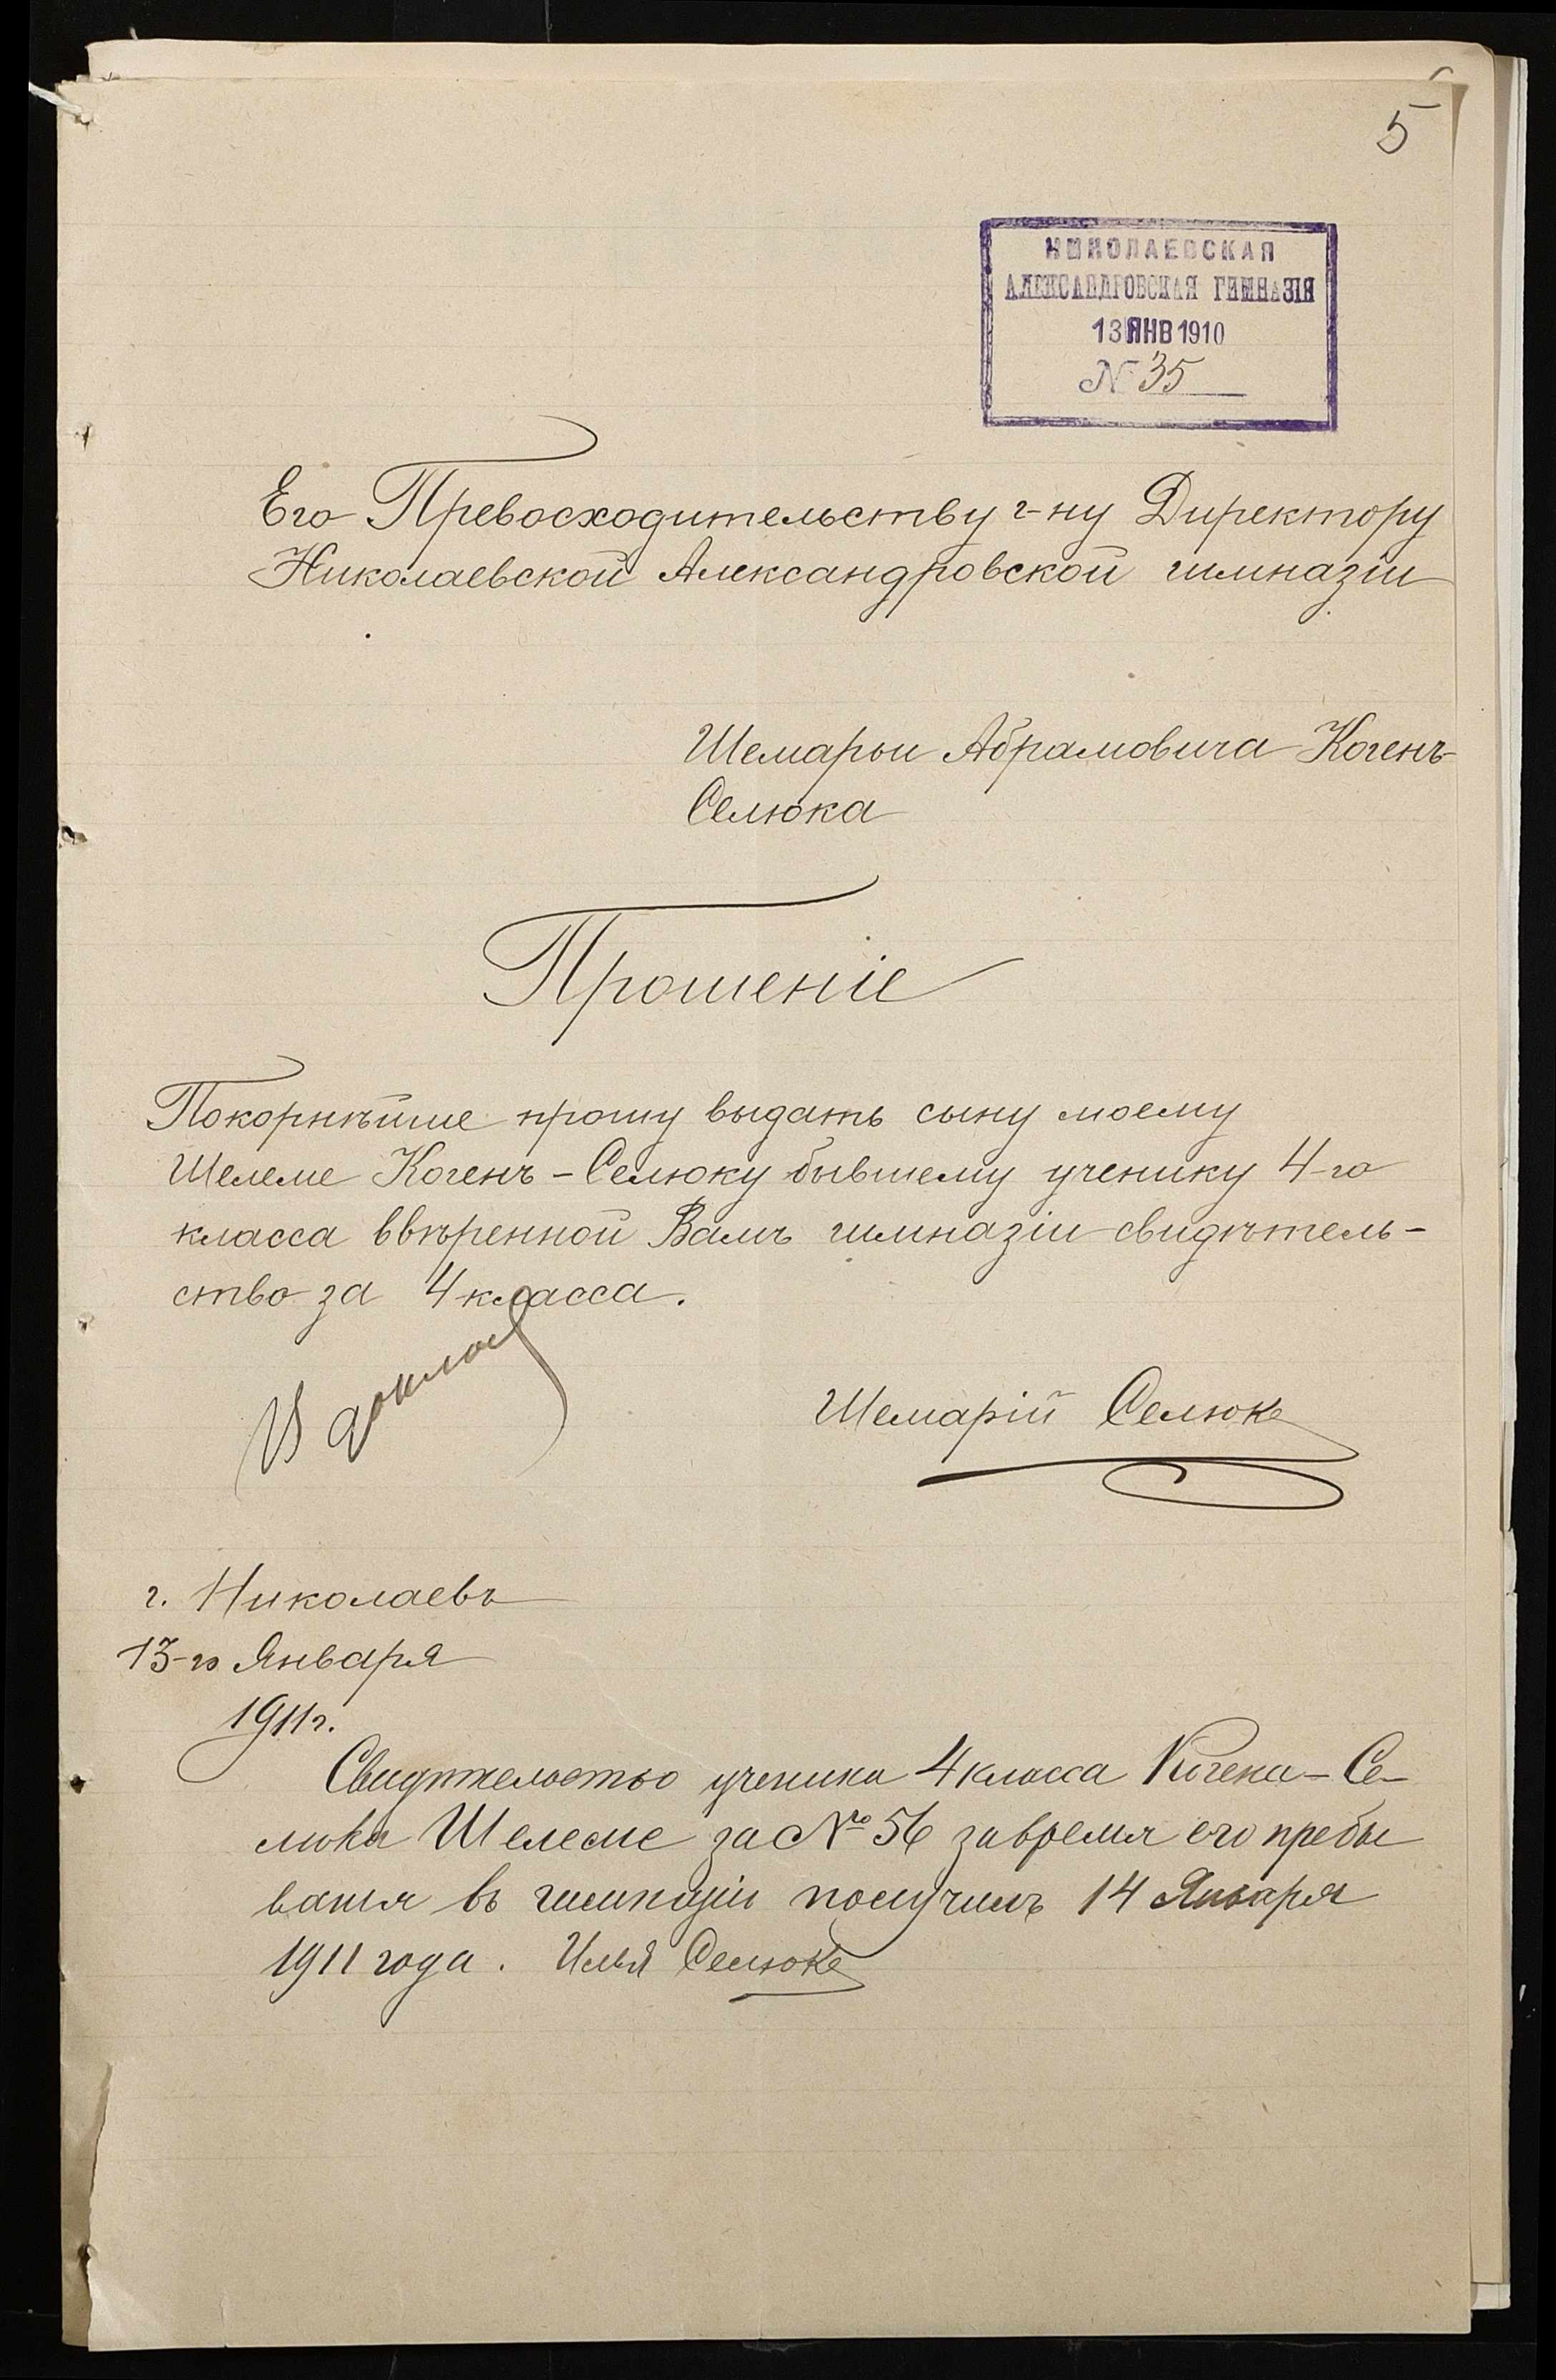 5
НИКОЛАЕВСКАЯ
АЛЕКСАНДРОВСКАЯ ГИМНАЗІЯ
13 ЯНВ 1910
№ 35
Его Превосходительству г-ну Директору
Николаевской Александровской гимназіи
Шемарьи Абрамовича Когенъ-
Селюка
Прошеніе
Покорнѣйше прошу выдать сыну моему
Шелеме Когенъ-Селюку бывшему ученику 4-го
класса ввѣренной Вамъ гимназіи свидѣтель-
ство за 4 класса.
Шемарій Селюкъ
г. Николаевъ
13-го Января
1911 г.
Свидѣтельство ученика 4 класса Когена-Се-
люка Шелеме за № 56 за время его пребы
ванія въ гимназіи получилъ 14 Января
1911 года. Илья Селюкъ